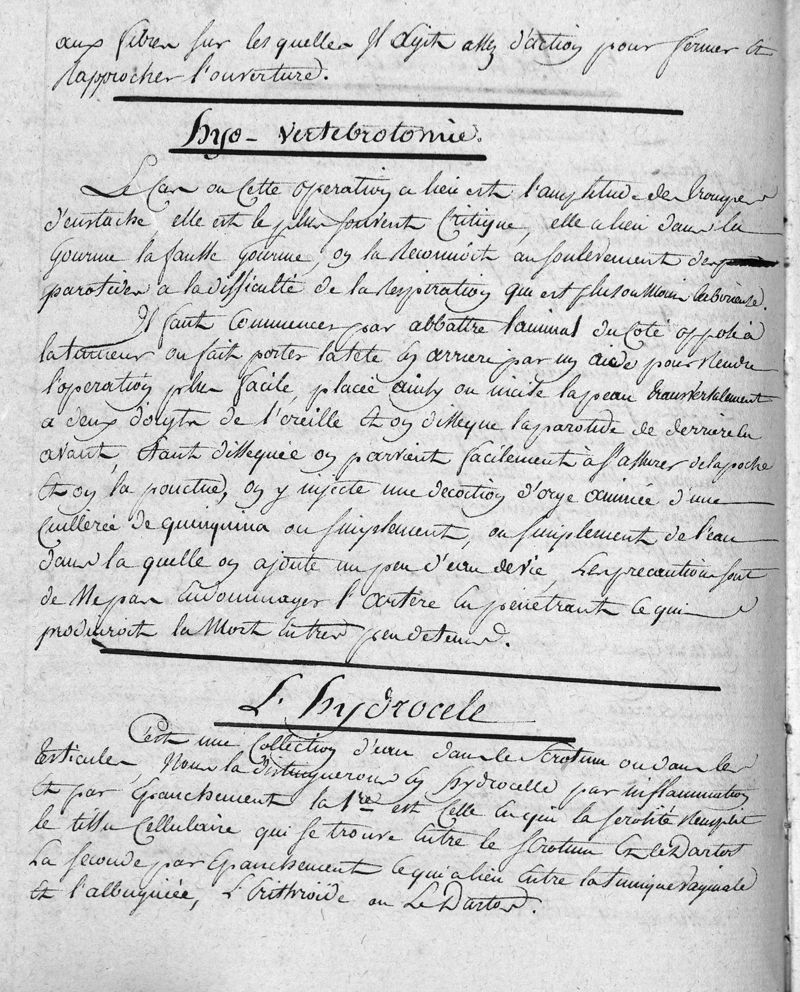 aux fibres sur lesquelles Il agit assez d'action pour fermer et
rapprocher l'ouverture.
hyo-vertebrotomie.
Le Cas ou Cette operation a lieu est l'amptitude des trompes
d'eustache, elle est le plus souvent Critique, elle a lieu dans la
Gourme la fausse gourme, on la reconnoit au soulevement des
parotides a la difficulté de la Respiration qui est plus ou Moins laborieuse.
Il faut Commencer par abbattre l'animal du Coté opposé a
la tumeur on fait porter la tete en arriere par un aide pour rendre
l'operation plus facile, placée ainsy on incise la peau transversalement
a deux doigts de l'oreille et on disseque la parotide de derriere en
avant, Etant dissequée on parvient facilement à s'assurer de la poche
et on la ponctue, on y injecte une decoction d'orge animée d'une
Cuillerée de quinquina ou simplement, ou simplement de l'eau
dans la quelle on ajoute un peu d'eau de vie, Les precautions sont
de Ne pas Endommager l'artère En pénétrant ce qui
produiroit la Mort En très peu de tems.
L'hydrocele
C'est une Collection d'eau dans le Scrotum ou dans les
testicules, Nous la distinguerons en hydrocelle par inflammation
et par Epanchement la 1re est Celle En qui la serosité remplit
le tissu Cellulaire qui se trouve Entre le scrotum Et le Dartos
La seconde par Epanchement Ce qui a lieu Entre la tunique vaginale
et l'albuginée, L'Erithroïde ou Le Dartos.